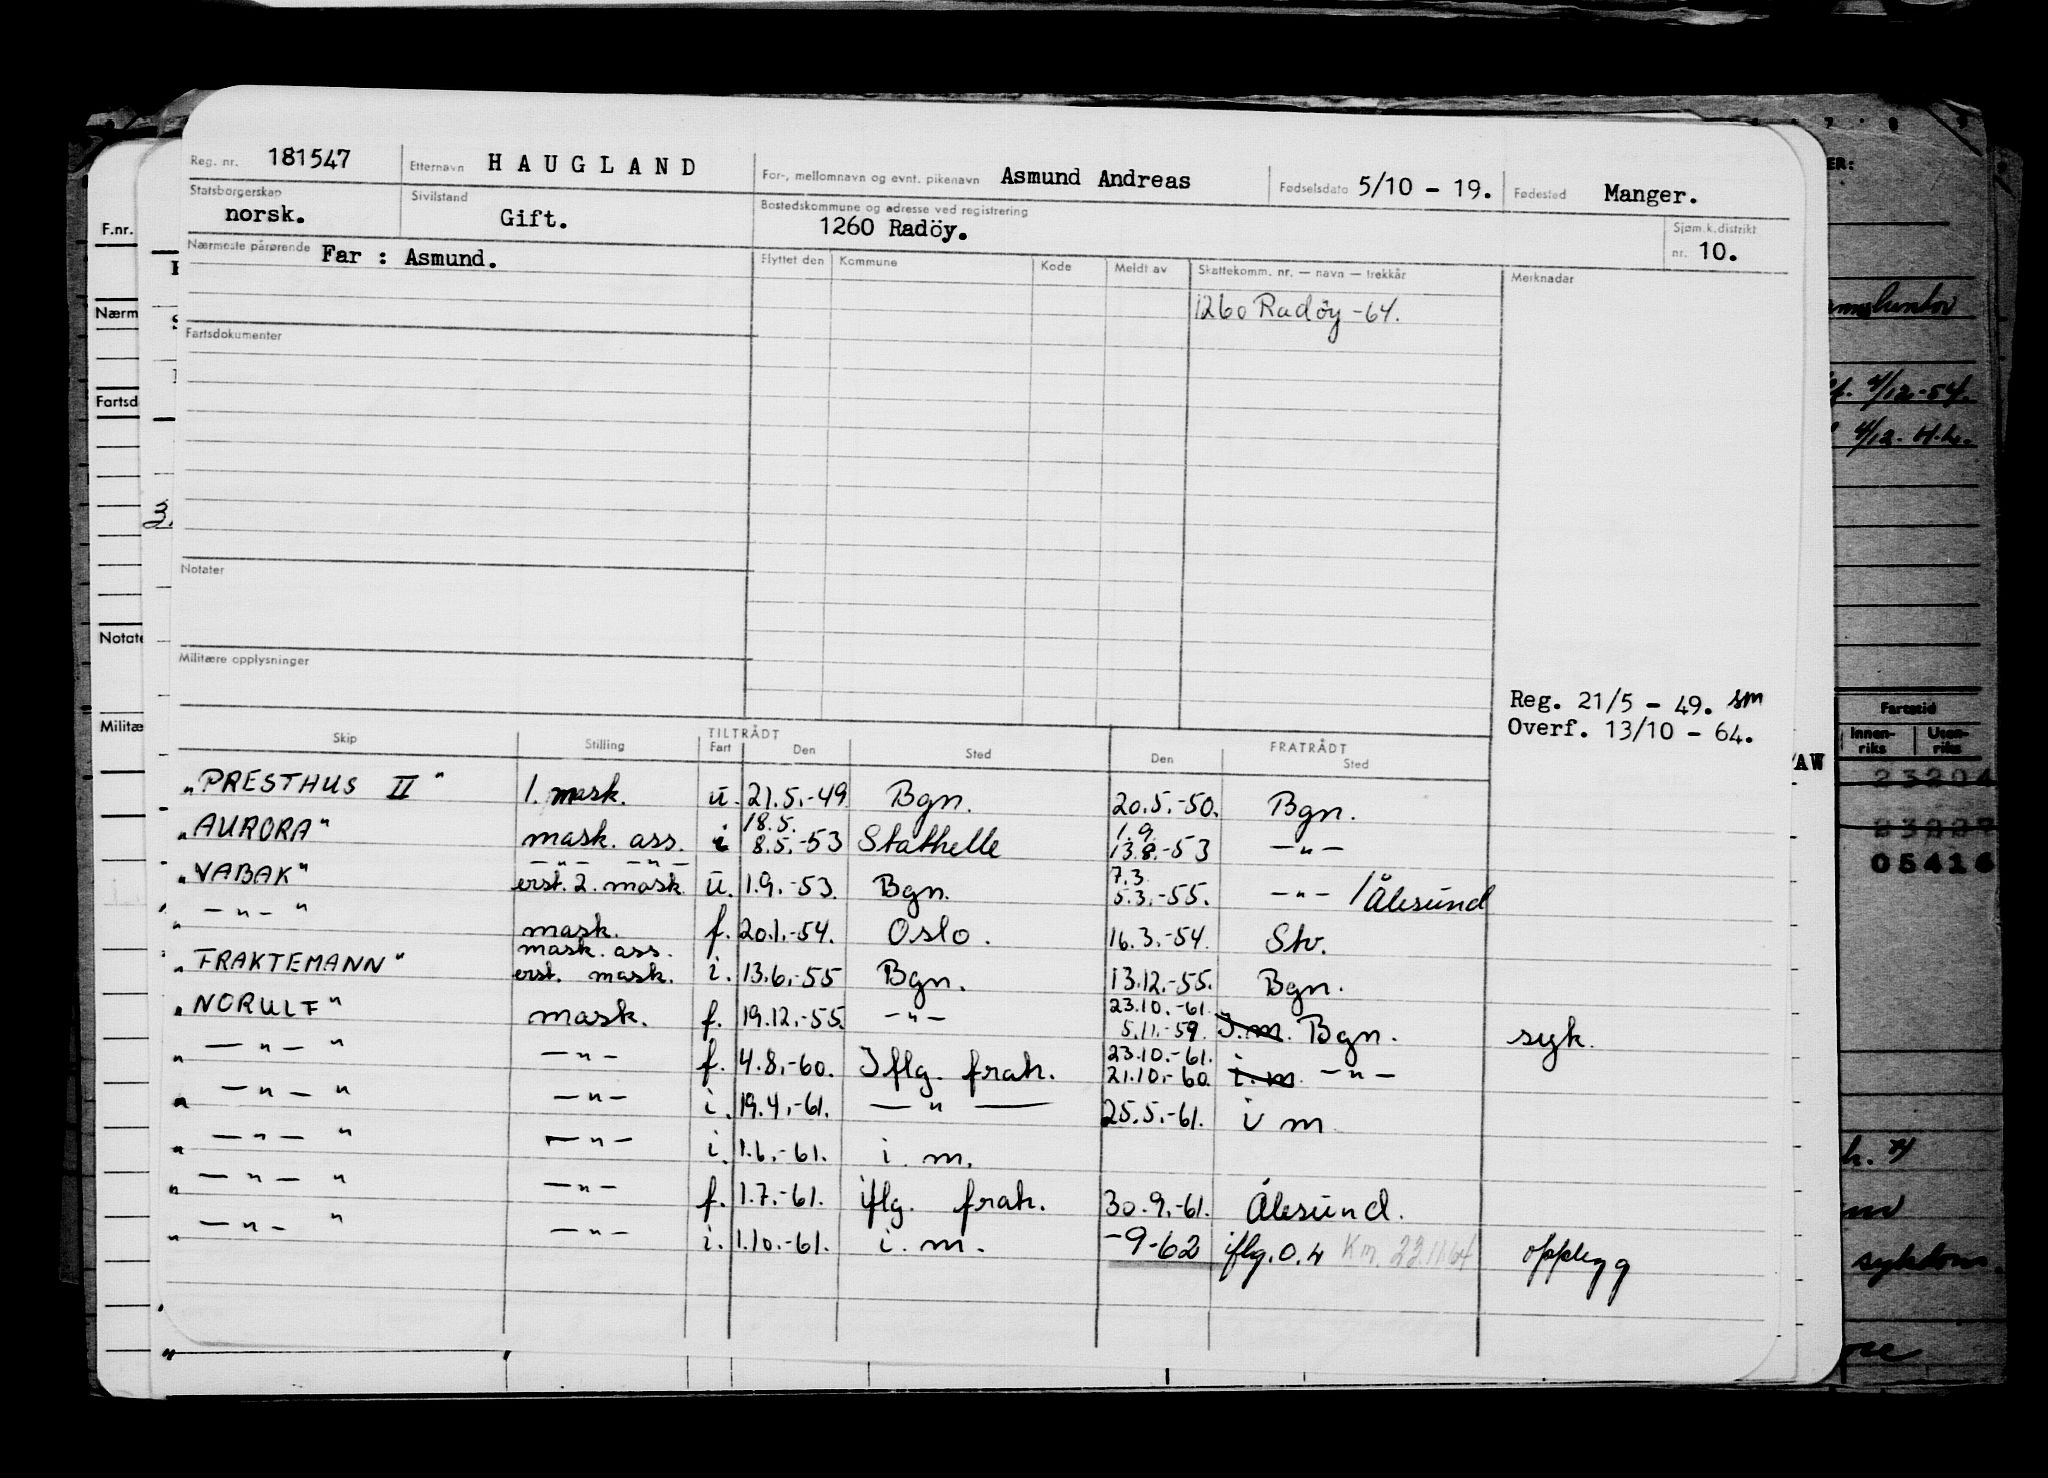 Reg. nr. 181547 Etternavn HAUGLAND For-, mellomnavn og evnt. pikenavn Asmund Andreas Fødselsdato 5/10 - 19. Fødested Manger.
Statsborgerskap norsk. Sivilstand Gift. Bostedskommune og adresse ved registrering 1260 Radöy. Sjøm.k.distrikt nr. 10.
Nærmeste pårørende Far : Asmund. Flyttet den Kommune Kode Meldt av Skattekomm. nr. — navn — trekkår Merknadar
1260 Radöy -64.
Fartsdokumenter
Notater
Militære opplysninger
Reg. 21/5 - 49. sm
Overf. 13/10 - 64.
Skip Stilling TILTRÅDT Fart Den Sted FRATRÅDT Den Sted
"PRESTHUS II" 1. mask. u. 21.5.-49 Bgn. 20.5.-50. Bgn.
18.5. 1.9.
"AURORA" mask. ass. i 8.5.-53 Stathelle 13.8.-53 —"—
—"— —"— 7.3
"VABAK" erst. 2. mask u. 1.9.-53. Bgn. 5.3.-55. —"— / Ålesund
"—"—" mask. f. 20.1.-54. Oslo. 16.3.-54. Stv.
mask. ass.
"FRAKTEMANN" erst. mask. i. 13.6.-55 Bgn. 13.12.-55. Bgn.
23.10.-61
"NORULF" mask. f. 19.12.-55. —"— 5.11.-59. I.m. Bgn. syk.
23.10.-61.
"—"—" —"— f. 4.8.-60. Iflg. frah. 21.10.-60. i.m. —"—
"—"—" —"— i. 19.4.-61. —"— 25.5.-61. i m
"—"—" —"— i. 1.6.-61. i. m.
"—"—" —"— f. 1.7.-61. iflg. frah. 30.9.-61. Ålesund.
"—"—" —"— i. 1.10.-61. i. m. -9-62 iflg. O.k Km. 23.11.64 opplegg
F.nr.
Nærm
Fartsd
Notate
Militæ
ER:
4/12-54.
4/12. H.h.
Fartstid
Innen-riks Uten-riks
23204
05416
/AW
sykdom.